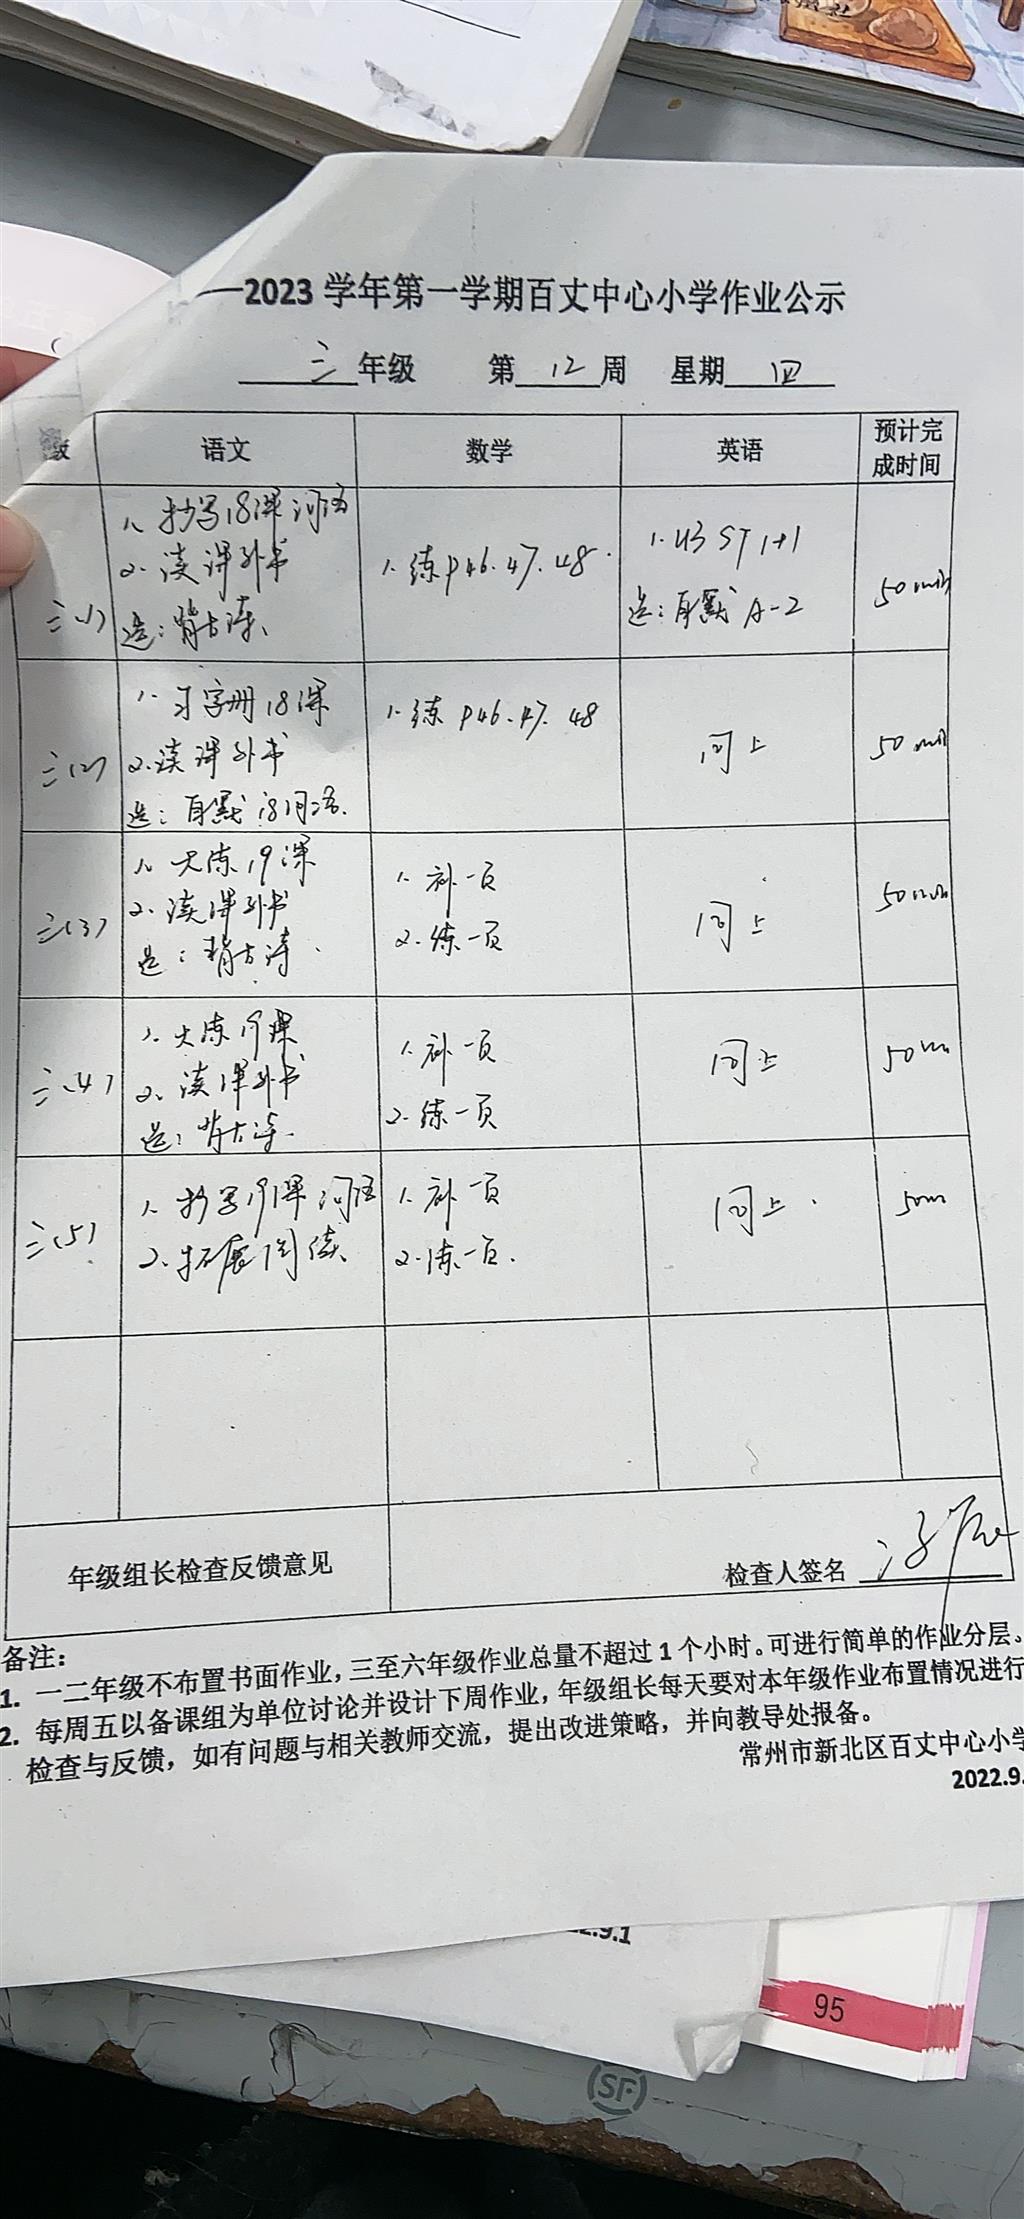 2023 学年第一学期百丈中心小学作业公示
三年级 第12周 星期四
语文 数学 英语 预计完成时间
三(1)
1. 抄写18课词语
2. 读课外书
选：背古诗、
1. 练P46.47.48.
1. U3 ST 1+1
选：自默 A-2
50 min
三(2)
1. 习字册18课
2. 读课外书
选：自默18词语.
1. 练P46.47.48
同上
50 min
三(3)
1. 大练19课
2. 读课外书
选：背古诗.
1. 补一页
2. 练一页
同上
50 min
三(4)
1. 大练19课
2. 读课外书
选：背古诗.
1. 补一页
2. 练一页
同上
50
三(5)
1. 抄写19课词语
2. 拓展阅读
1. 补一页
2. 练一页.
同上.
50m
年级组长检查反馈意见
检查人签名
备注：
1. 一二年级不布置书面作业，三至六年级作业总量不超过 1 个小时。可进行简单的作业分层。
2. 每周五以备课组为单位讨论并设计下周作业，年级组长每天要对本年级作业布置情况进行
检查与反馈，如有问题与相关教师交流，提出改进策略，并向教导处报备。
常州市新北区百丈中心小学
2022.9.
2.9.1
95
SF